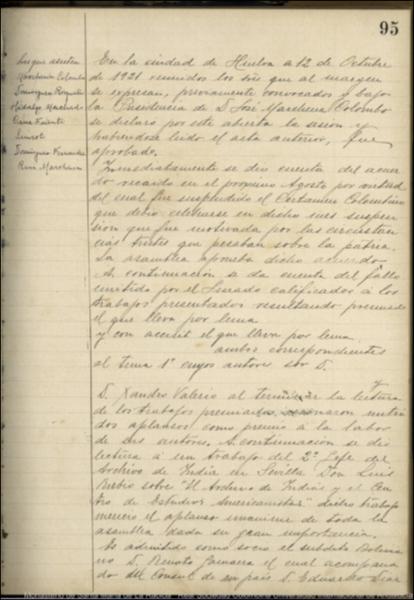 95
Marchena Colombo
Dominguez Roqueta
Hidalgo Machado
Dominguez Fernandez
Ruiz Marchena
En la ciudad de Huelva a 12 de Octubre
de 1921 reunidos los sres que al margen
se expresan, previamente convocados y bajo
la Presidencia de D. José Marchena Colombo
se declaro por este abierta la sesion y
habiendose leido el acta anterior, fue
aprobada.
Inmediatamente se dio cuenta del acuer
do recaido en el proximo Agosto por virtud
del cual fue suspendido el Certamen Colombino
que debio celebrarse en dicho mes suspen
sion que fue motivada por las circunstan
cias tristes que pesaban sobre la patria.
La asamblea aprueba dicho acuerdo
A continuación se da cuenta del fallo
emitido por el Jurado calificador á los
trabajos presentados resultando premiado
el que lleva por lema
y con accesit el que lleva por lema
ambos correspondientes
al tema 1º cuyos autores son D.
y
D. Xandro Valerio al terminar la lectura
de los trabajos premiados, sonaron nutri
dos aplausos como premio á la labor
de sus autores. A continuación se dio
lectura á un trabajo del 2º Jefe del
Archivo de Indias en Sevilla Don Luis
Rubio sobre "El Archivo de Indias y el Cen
tro de Estudios Americanistas" dicho trabajo
merecio el aplauso unanime de toda la
asamblea dada su gran importancia.
Es admitido como socio el subdito Bolivia
no D. Renato el cual acompaña
do del Consul de su pais D. Eduardo Diaz